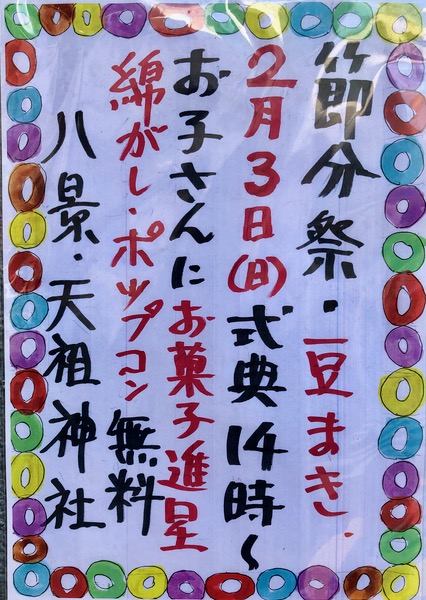 節分祭・豆まき・
2月3日(日)式典14時〜
お子さんにお菓子進呈
綿がし・ポップコン無料
八景・天祖神社